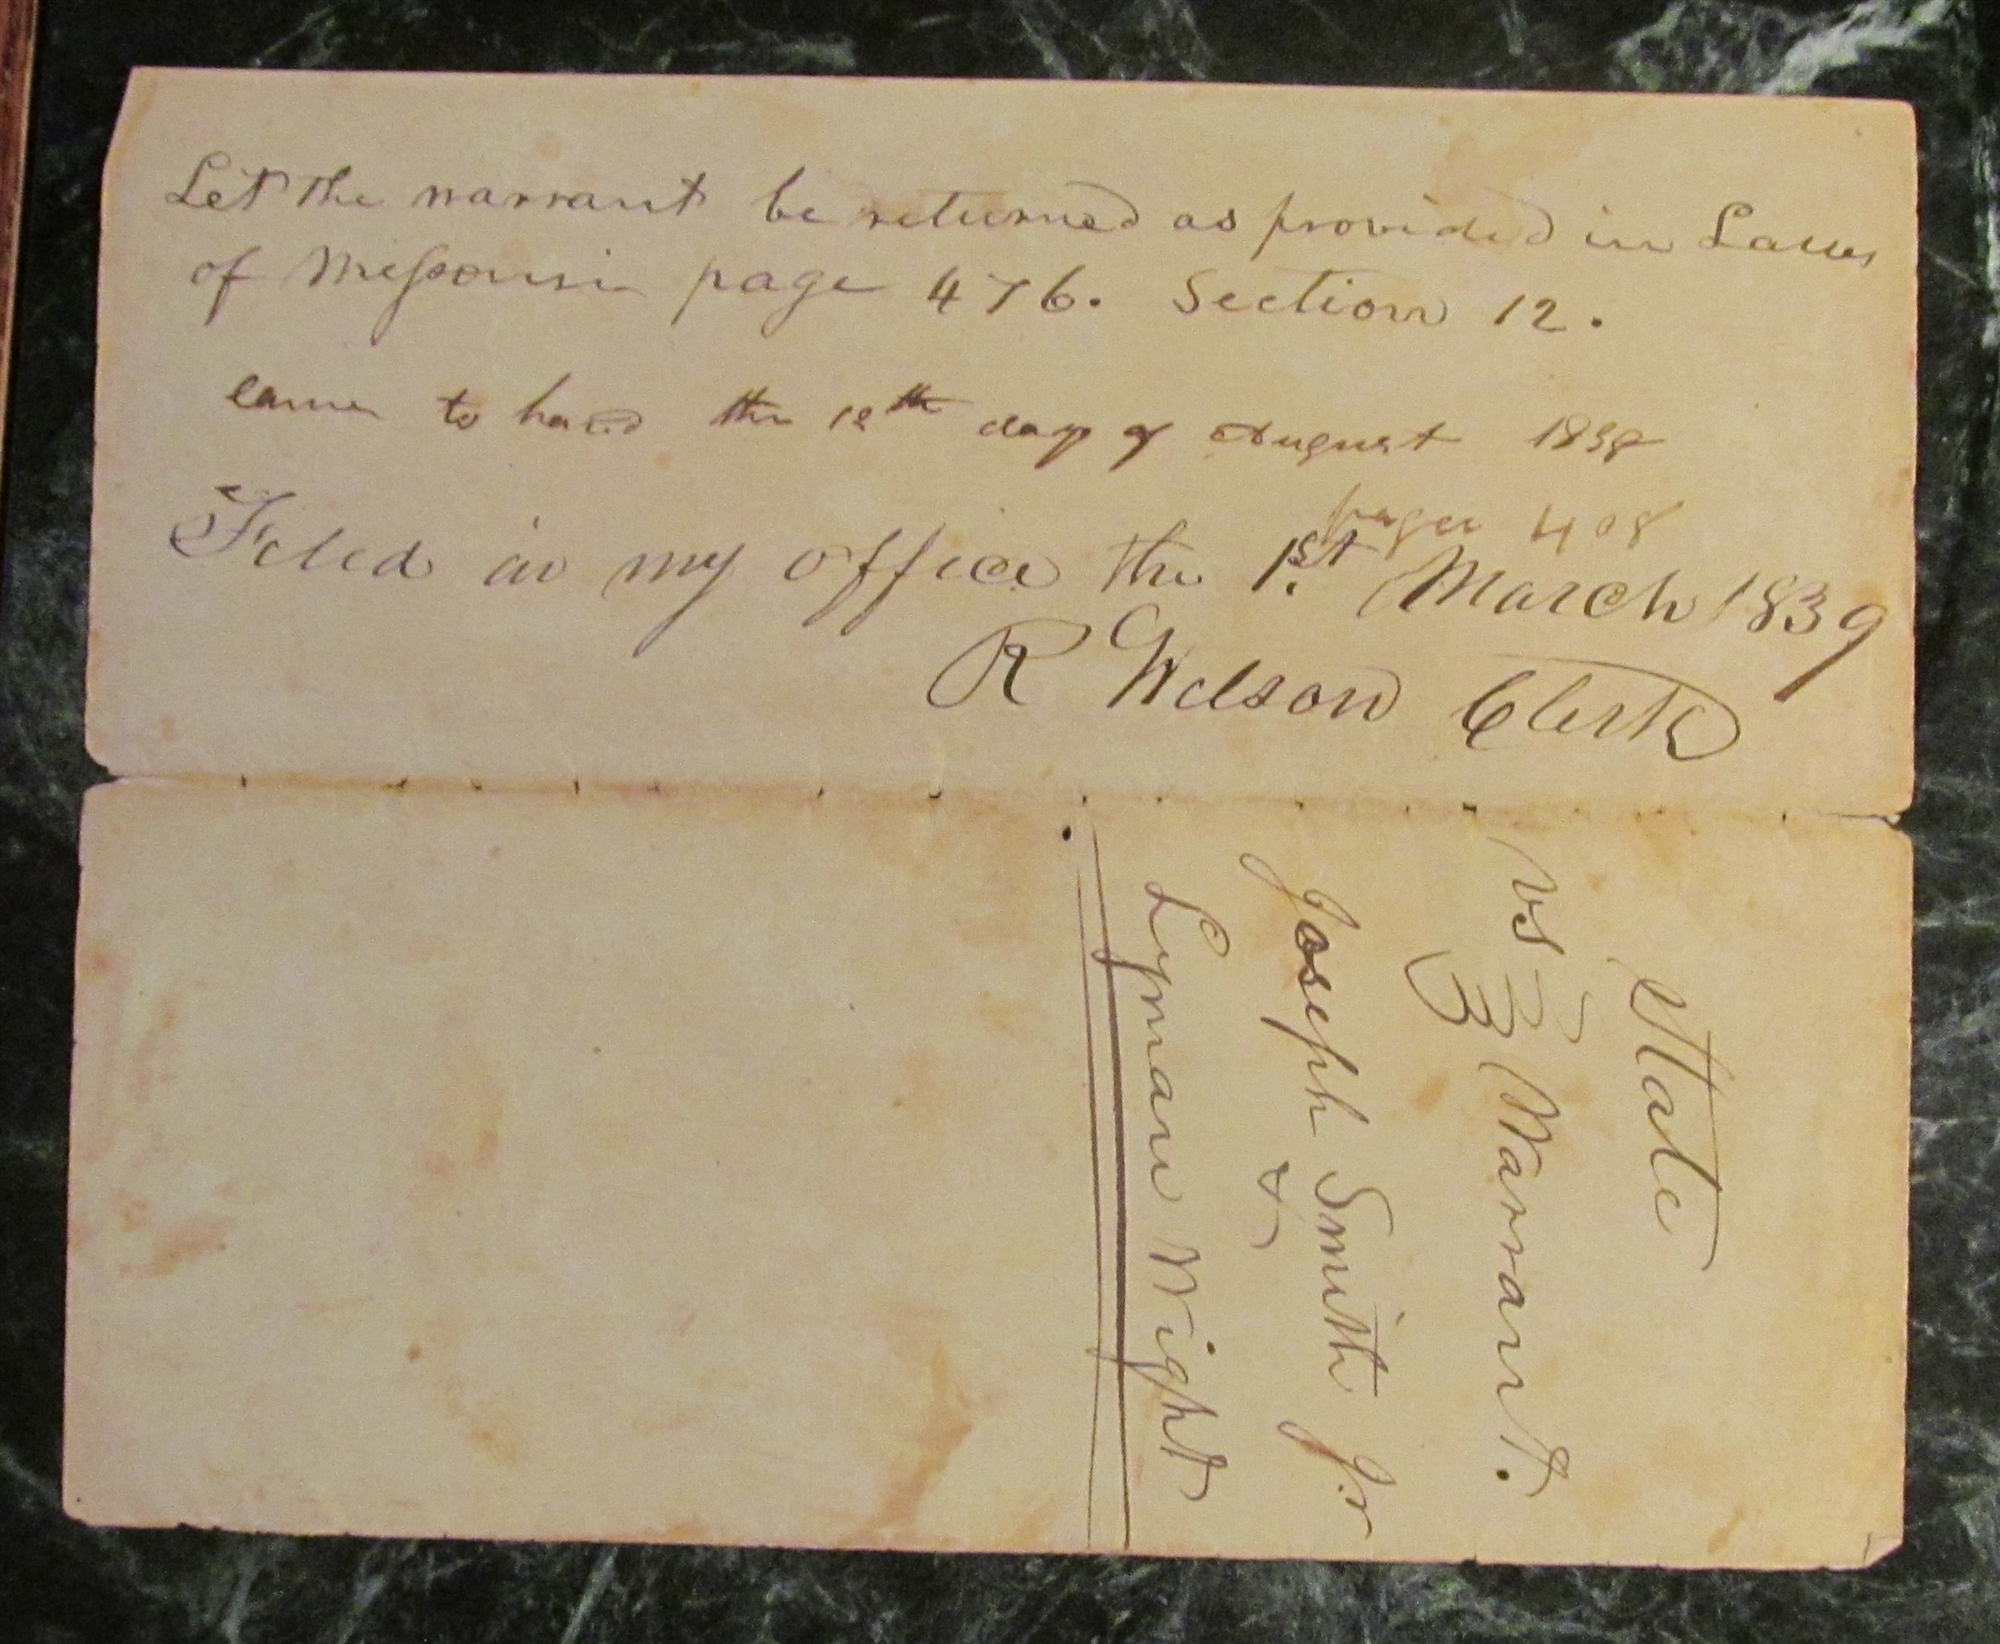 Let the warrant be returned as provided in Laws
of Missouri page 476. Section 12.
came to hand the 12th day of August 1838
pages 408
Filed in my office the 1st. March 1839
R Wilson Clerk
State
vs Warrant.
Joseph Smith Jr
&
Lyman Wight